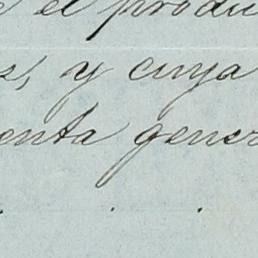 e el produ
s, y cuya
enta gener